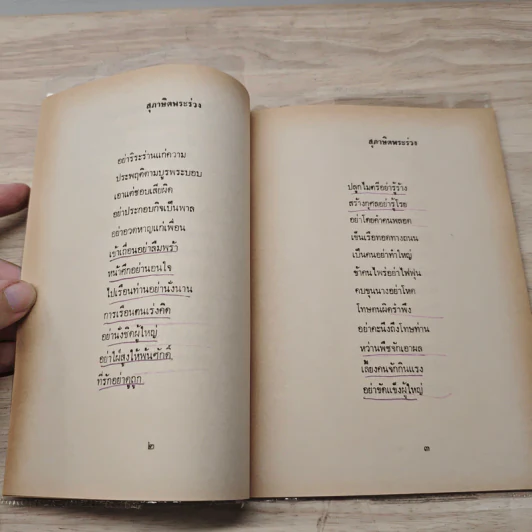 สุภาษิตพระร่วง
อย่าริระร่านแก่ความ
ประพฤติตามบูรพระบอบ
เอาแต่ชอบเสียผิด
อย่าประกอบกิจเป็นพาล
อย่าอวดหาญแก่เพื่อน
เข้าเถื่อนอย่าลืมพร้า
หน้าศึกอย่านอนใจ
ไปเรือนท่านอย่านั่งนาน
การเรือนตนเร่งคิด
อย่านั่งชิดผู้ใหญ่
อย่าใฝ่สูงให้พ้นศักดิ์
ที่รักอย่าดูถูก
๒
สุภาษิตพระร่วง
ปลูกไมตรีอย่ารู้ร้าง
สร้างกุศลอย่ารู้โรย
อย่าโดยคำคนพลอด
เข็นเรือทอดทางถนน
เป็นคนอย่าทำใหญ่
ข้าคนไพร่อย่าไฟฟุน
คบขุนนางอย่าโหด
โทษตนผิดรำพึง
อย่าคะนึงถึงโทษท่าน
หว่านพืชจักเอาผล
เลี้ยงคนจักกินแรง
อย่าขัดแข็งผู้ใหญ่
๓